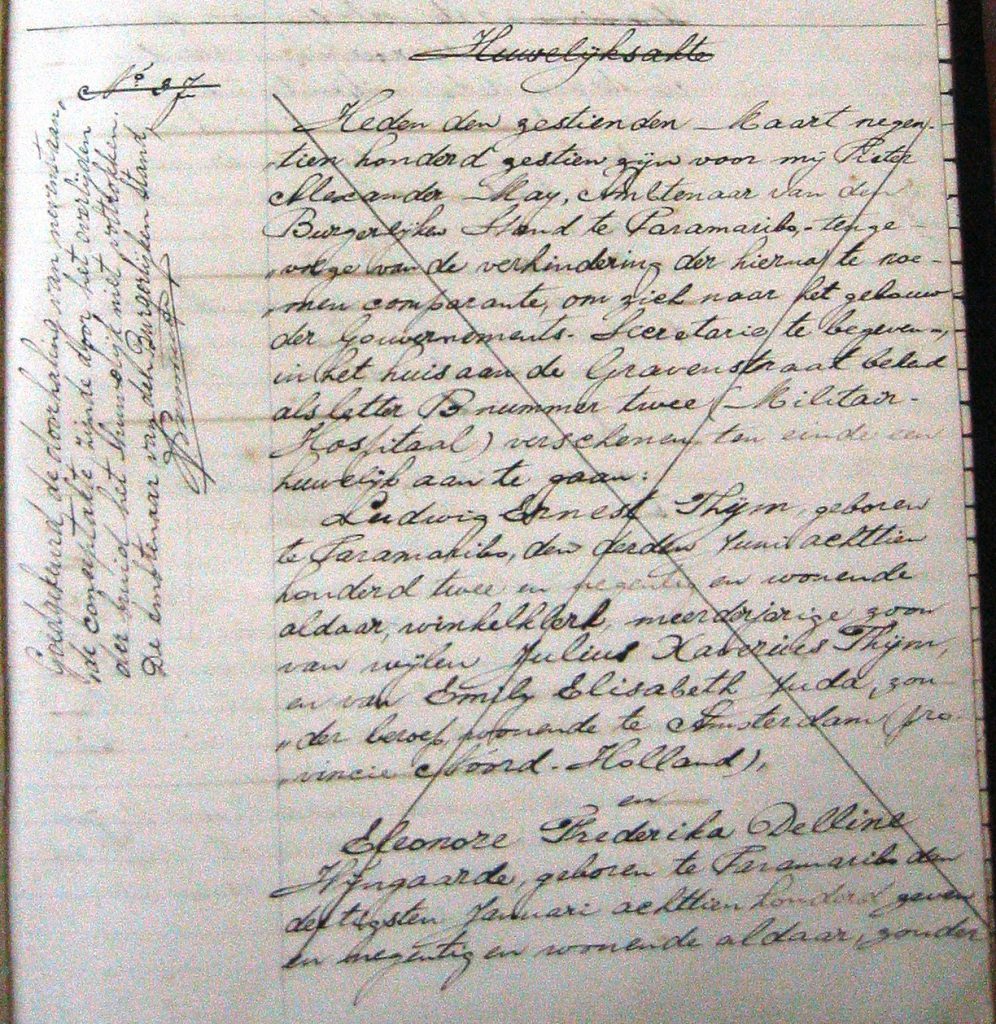 Huwelijksakte
No 27
Heden den zestienden Maart negen-
tien honderd zestien zijn voor mij Pieter
Alexander May, Ambtenaar van den
Burgerlijken Stand te Paramaribo, tenge-
volge van de verhindering der hierna te noe-
men comparante, om zich naar het gebouw
der Gouvernements-Secretarie te begeven,
in het huis aan de Gravenstraat bekend
als letter B nummer twee (Militair-
Hospitaal) verschenen ten einde een
huwelijk aan te gaan:
Ludwig Ernest Thijm, geboren
te Paramaribo, den derden Juni achttien
honderd twee en negentig en wonende
aldaar, winkelklerk, meerderjarige zoon
van wijlen Julius Xaverius Thijm,
en van Emily Elisabeth Juda, zon-
der beroep, wonende te Amsterdam (pro-
vincie Noord-Holland),
en
Eleonore Frederika Delline
Wijngaarde, geboren te Paramaribo den
dertigsten Januari achttien honderd zeven
en negentig en wonende aldaar, zonder
Goedgekeurd de doorhaling van nevenstaan,
de conceptakte zijnde door het overlijden
der bruid het huwelijk niet voltrokken.
De ambtenaar van den Burgerlijken Stand,